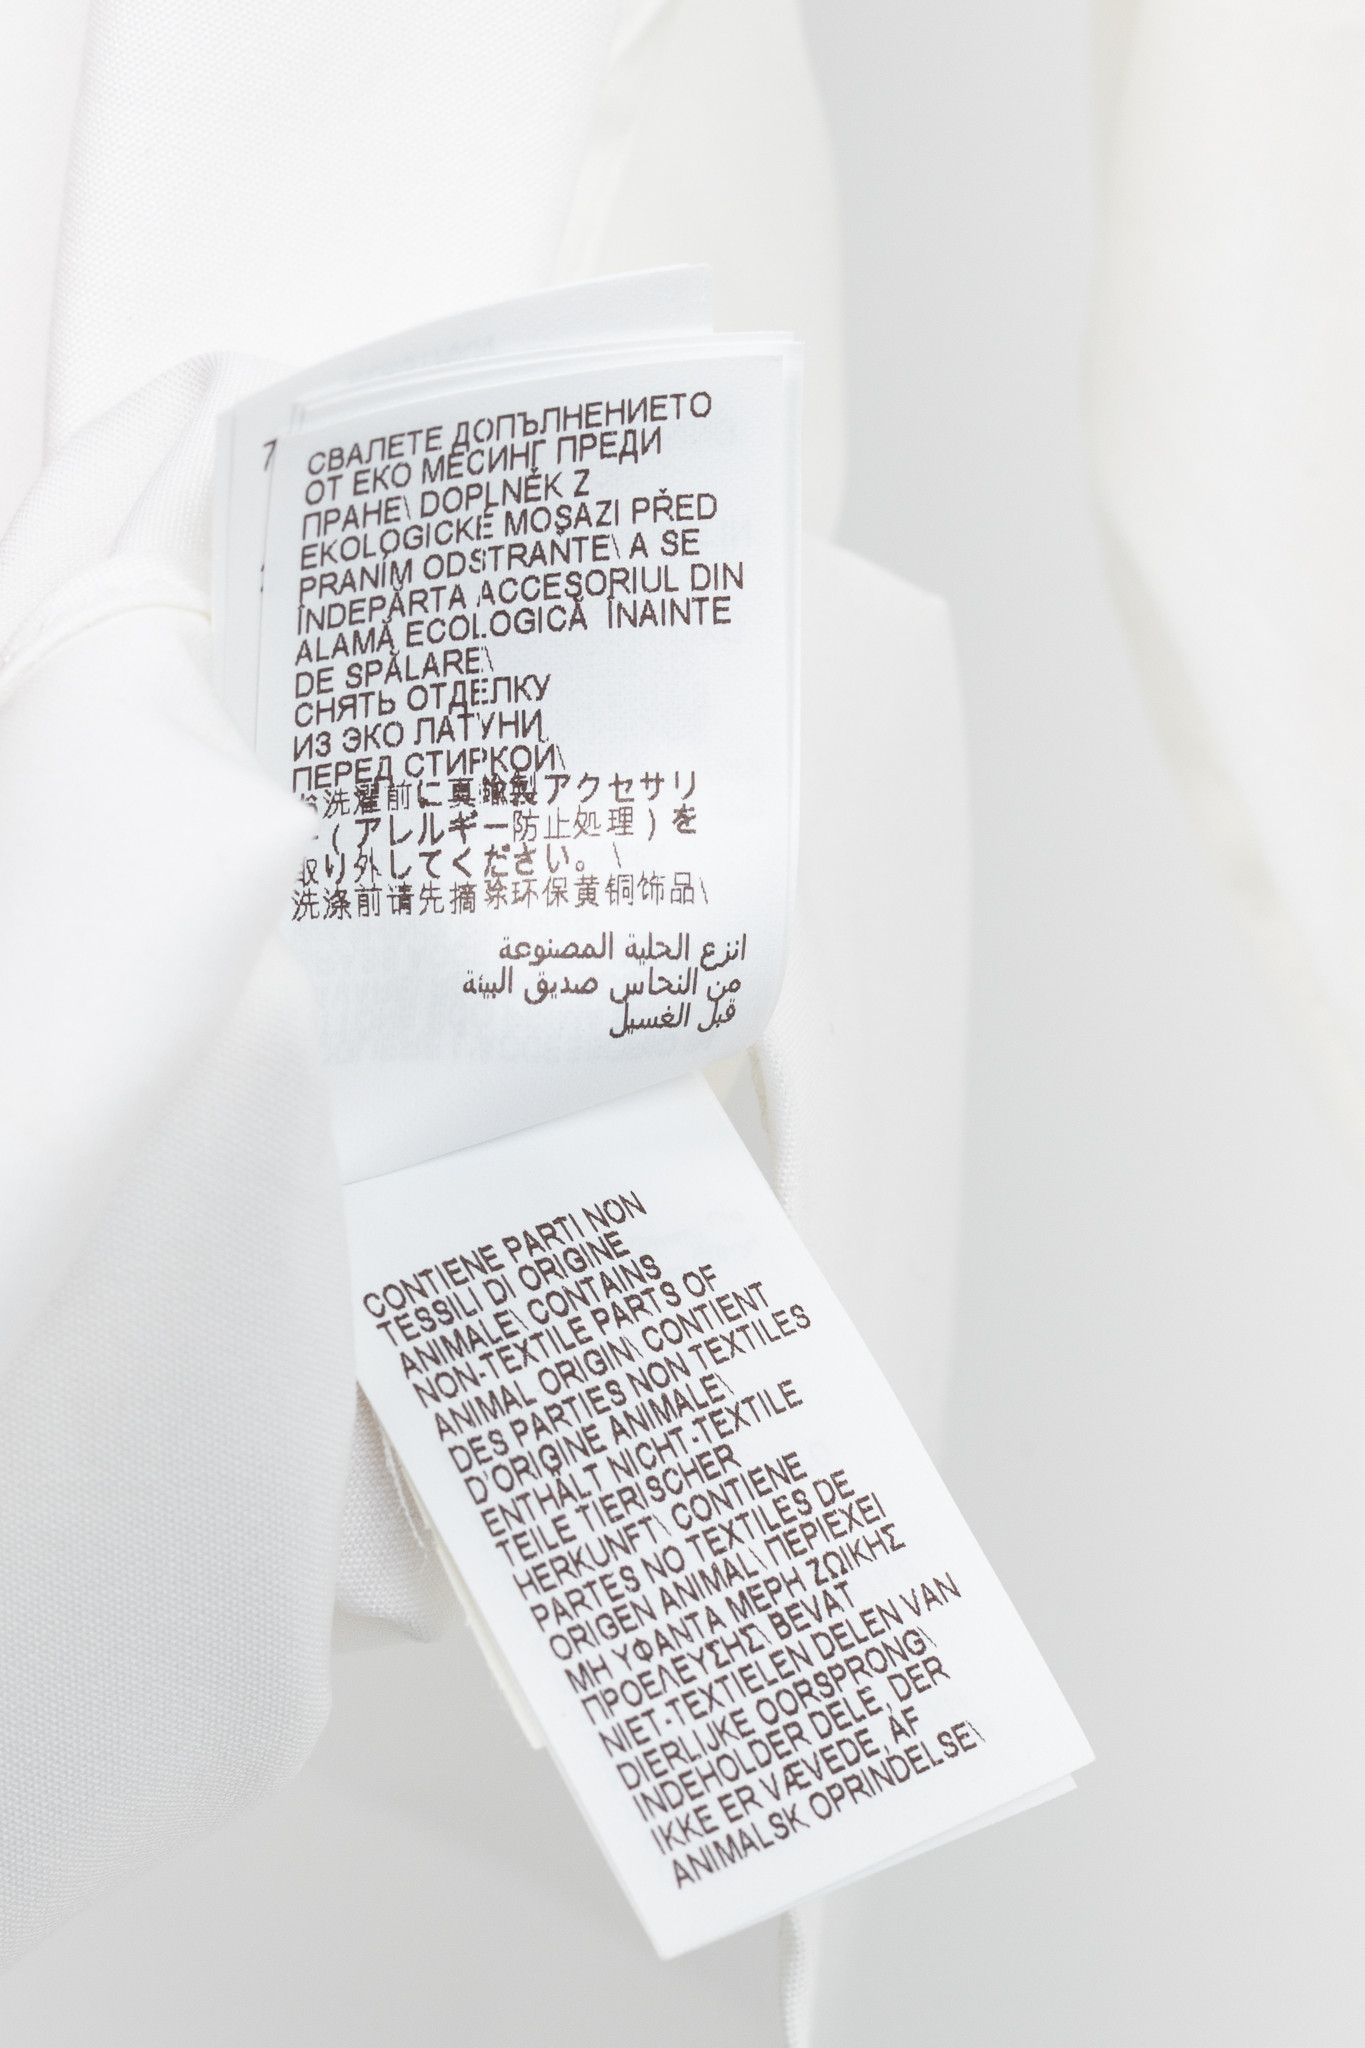 7
СВАЛЕТЕ ДОПЪЛНЕНИЕТО
ОТ ЕКО МЕСИНГ ПРЕДИ
ПРАНЕ\ DOPLNĚK Z
EKOLOGICKÉ MOSAZI PŘED
PRANÍM ODSTRAŇTE\ A SE
ÎNDEPĂRTA ACCESORIUL DIN
ALAMĂ ECOLOGICĂ ÎNAINTE
DE SPĂLARE\
СНЯТЬ ОТДЕЛКУ
ИЗ ЭКО ЛАТУНИ
ПЕРЕД СТИРКОЙ\
洗濯前に真鍮製アクセサリ
ー(アレルギー防止処理)を
取り外してください。\
洗涤前请先摘除环保黄铜饰品\
انزع الحلية المصنوعة
من النحاس صديق البيئة
قبل الغسيل
CONTIENE PARTI NON
TESSILI DI ORIGINE
ANIMALE\ CONTAINS
NON-TEXTILE PARTS OF
ANIMAL ORIGIN\ CONTIENT
DES PARTIES NON TEXTILES
D'ORIGINE ANIMALE\
ENTHÄLT NICHT-TEXTILE
TEILE TIERISCHER
HERKUNFT\ CONTIENE
PARTES NO TEXTILES DE
ORIGEN ANIMAL\ ΠΕΡΙΕΧΕΙ
ΜΗ ΥΦΑΝΤΑ ΜΕΡΗ ΖΩΙΚΗΣ
ΠΡΟΕΛΕΥΣΗΣ\ BEVAT
NIET-TEXTIELEN DELEN VAN
DIERLIJKE OORSPRONG\
INDEHOLDER DELE, DER
IKKE ER VÆVEDE, AF
ANIMALSK OPRINDELSE\